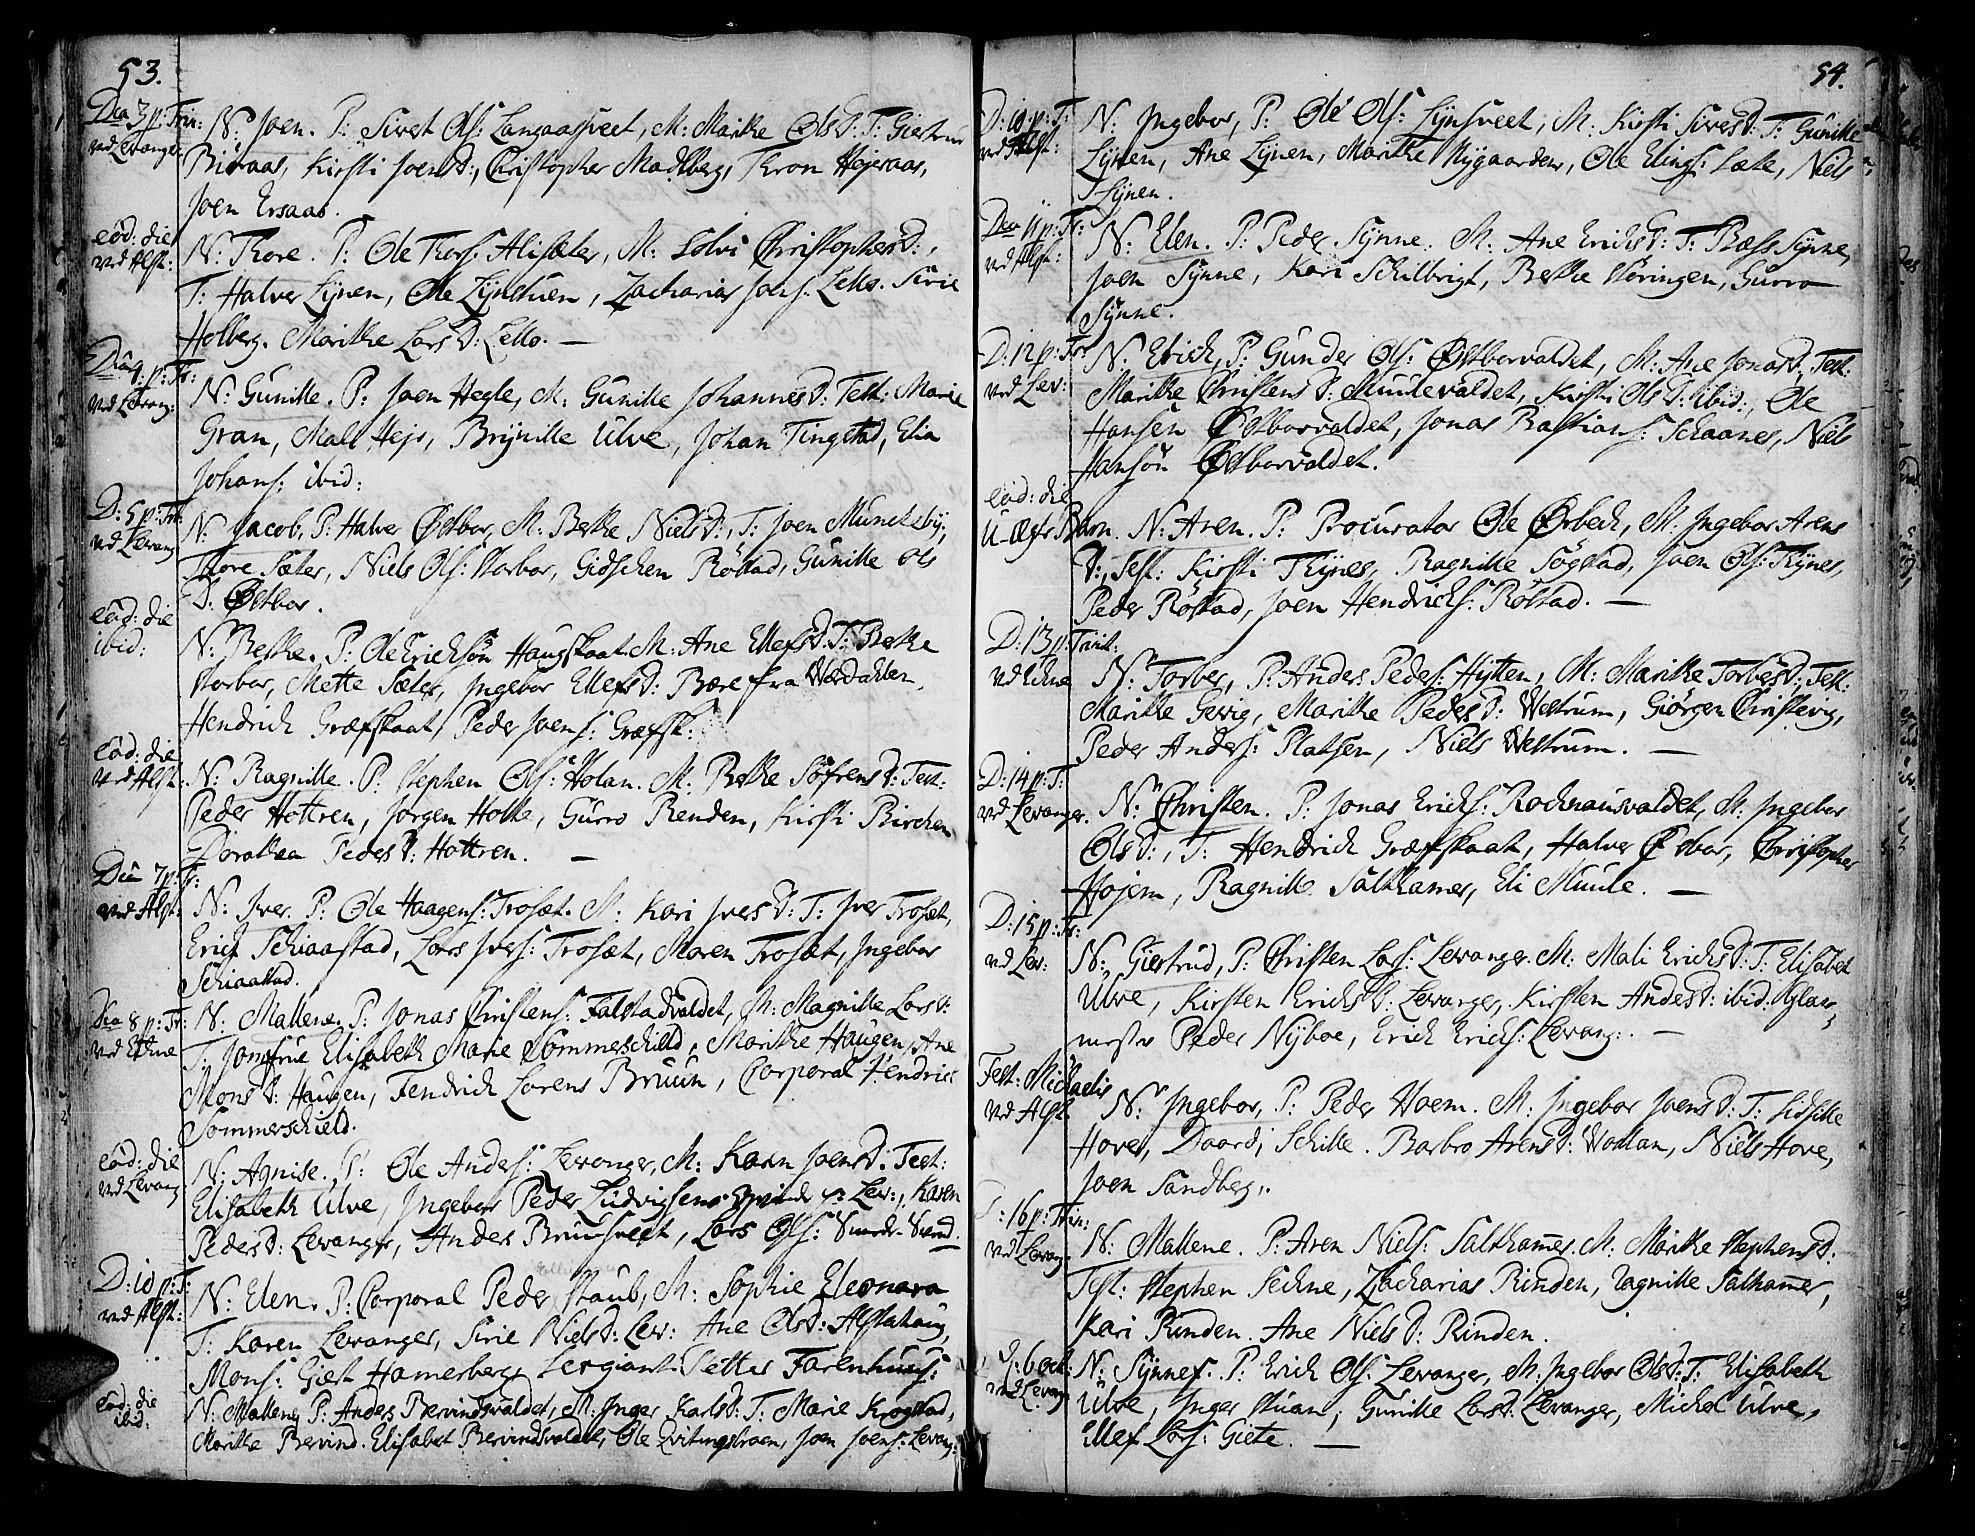 53.
Dca 3 p: Trin:
ved Levanger
N: Joen. P: Sivert Ols: Langaasveet, M: Marithe Ols D: T: Giertrud
Buraas, Kirsti Joens D:, Christopher Madsberg, Thron Højeraas,
Joen Ersaas.
eod: die
ved Alst:
N: Thore. P: Ole Thors: Alisæter, M: Solvi Christophers D:,
T: Halver Lÿnen, Ole Lÿnstuen, Zacharias Joens: Lello. Sirie
Holberg. Marithe Lars D: Lello. —
Dca 4. p: Tr:
ved Levang:
N: Gunille. P: Joen Hegle, M: Gunille Johannes D: Test: Marie
Gran, Mali Hejr, Brÿnille Ulve, Johan Tingstad, Elia
Johans: ibid:
D: 5 p: Tr:
ved Levang
N: Jacob, P: Halver Østbor, M: Bethe Niels D:, T: Joen Munckebÿ,
Thore Sæter, Niels Ols: Storbor, Gidschen Röstad, Gunille Ols
D: Østbor.
eod: die
ibid:
N: Bethe. P: Ole Erichsøn Haugskaat M: Ane Ellefs D: T: Bethe
Storbor, Mette Sæter, Ingebor Ellefs D: Bære fra Wærdahlen,
Hendrich Græfskaat, Peder Joens: Græfsk:
eod: die
ved Alst.
N: Ragnille. P: Stephen Ols: Holan. M: Bethe Söfrens D: Test:
Peder Hottren, Jörgen Holte, Gurro Renden, Kirsti Birchen
Dorothea Peders D: Hottren. —
Dca 7 p: Tr:
ved Alst:
N: Iver. P: Ole Haagens: Trosæt. M: Kari Ivers D: T: Iver Trosæt,
Erich Schiaastad, Lars Ivers: Trosæt, Maren Trosæt, Ingebor
Schiaastad.
Dca 8 p: Tr:
ved Ekne
N: Mallene. P: Jonas Christens: Falstadvaldet, M: Magnille Lars D:
T: Jomfrue Elisabeth Marie Sommerschield, Marithe Haugen, Ane
Mons D: Haugen, Fendrich Lorens Bruun, Corporal Hendrich
Sommerschield.
eod: die
ved Levang
N: Agnise. P: Ole Anders: Levanger, M: Karn Joens D. Test:
Elisabeth Ulve, Ingebor Peder Ludvigsens Lev:, Karen
Peders D: Levanger, Anders Bruusveet, Lars Ols:
D: 10 p: T:
ved Alst:
N: Elen. P: Corporal Peder Staub, M: Sophie Eleonara
T: Karen Levanger, Sirie Niels D: Lev: Ane Ols D: Alstahaug,
Mons: Giert Hamerberg, Sergiant Petter Farenhuus:
eod: die
ibid:
N: Mallene, P: Anders Bervindsvaldet, M: Inger Karls D: T: Marie Krogstad,
Marithe Bervind. Elisabet Bervindsvaldet, Ole Qvitingstroen, Joen Joens: Levang:
54.
D: 10 p: T:
ved Alst:
N: Ingebor, P: Ole Ols: Lÿnsveet, M: Kirsti Sivers D: T: Gunille
Lÿnen, Ane Lÿnen, Marithe Nygaarden, Ole Elings: Sæte, Niels
Lÿnen.
Dca 11 p: Tr:
ved Alst:
N: Elen. P: Peder Sÿnne. M: Ane Erichs D: T: Bass Sÿnne,
Joen Sÿnne, Kari Schilbrigt, Bethe Störingen, Gurro
Sÿnne.
D: 12 p: Tr:
ved Lev:
N: Erich, P: Gunder Ols: Østborvaldet, M: Ane Jonas D. Test:
Marithe Christens D: Muulevaldet, Kirsti Ols D: ibid:, Ole
Hansen Østborvaldet, Jonas Bastians: Schaanes, Niels
Hansøn Østborvaldet.
eod: die
U-ægte Barn. N: Aren. P: Procurator Ole Ørbech, M. Ingebor Arens
D:, Test: Kirsti Thÿnes, Ragnille Søgstad, Joen Ols: Thÿnes,
Peder Röstad, Joen Hendrichs: Röstad. —
D: 13 p: Trinit:
ved Ekne
N: Torber, P: Anders Peders: Hÿtten, M: Marithe Torbers D: Test:
Marithe Gevig, Marithe Peders D: Westrum, Giörgen Christevig,
Peder Anders: Platsen, Niels Westrum. —
D: 14 p: T:
ved Levanger.
N: Christen. P: Jonas Erichs: Rochnausvaldet, M: Ingebor
Ols D:, T: Hendrich Græfskaat, Halver Østbor, Christopher
Hojem, Ragnille Salthamer, Eli Muule. —
D: 15 p: Tr:
ved Lev:
N: Giertrud, P: Christen Lars: Levanger. M: Mali Erichs D: T: Elisabet
Ulve, Kirsten Erichs D: Levanger, Kirsten Anders D: ibid. Glar-
mester Peder Nÿboe, Erich Erichs: Levang: —
Fest: Michaelis
ved Alst.
N: Ingebor, P: Peder Hoem. M: Ingebor Joens D: T: Sidsele
Hover, Daardi Schille. Barbro Arens D: Woelan, Niels Hove,
Joen Sandberg.
D: 16 p: Trin:
ved Levang.
N: Mallene. P: Aren Niels: Salthamer. M: Marithe Stephens D.
Test: Stephen Sechne, Zacharias Rinden, Ragnille Salthamer,
Kari Rinden. Ane Niels D: Rinden.
D: 6 oct:
ved Levang
N: Sÿnnef. P: Erich Ols: Levanger, M: Ingebor Ols D: T: Elisabeth
Ulve, Inger Stuan, Gunille Lars D: Levanger, Michel Ulve,
Ellef Lars: Giete. —